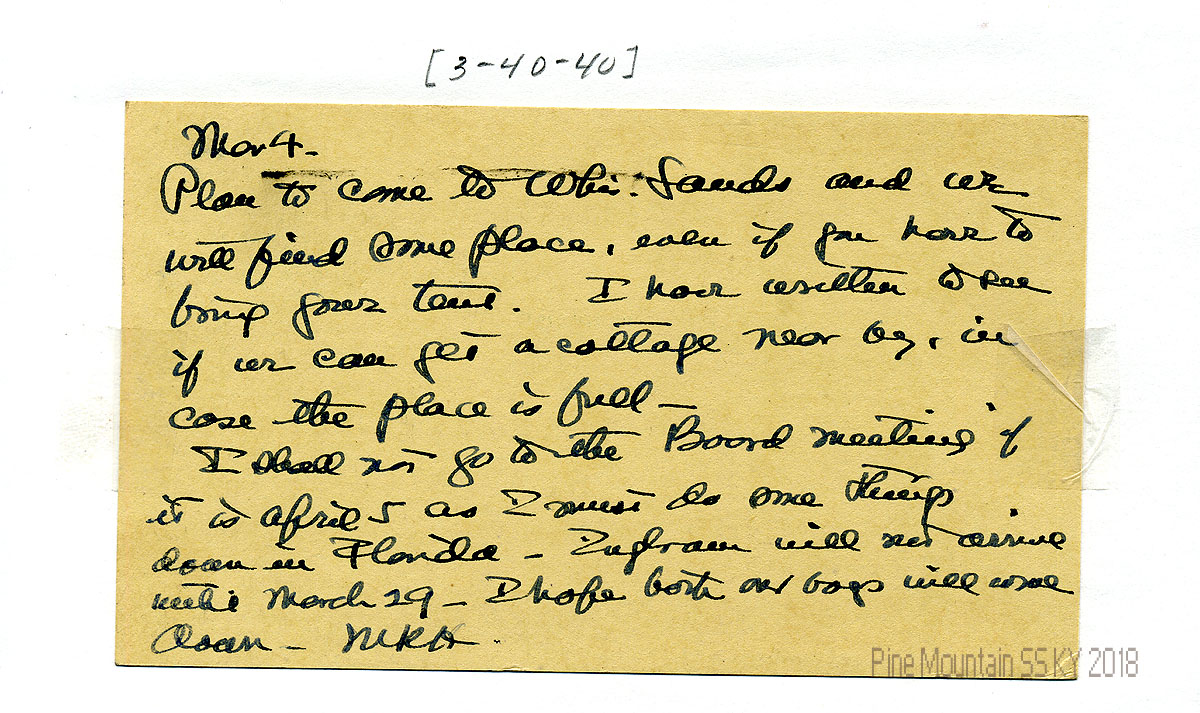 [3-40-40]
Mar 4-
Plan to come to Whis. Sands and we
will find some place, even if you have to
bring your tent. I have written to see
if we can get a cottage near by, in
case the place is full-
I shall not go to the Board meeting if
it is April 5 as I must do some things
down in Florida - Ingram will not arrive
until March 29 - I hope both our boys will come
down - MRH.
Pine Mountain SS KY 2018